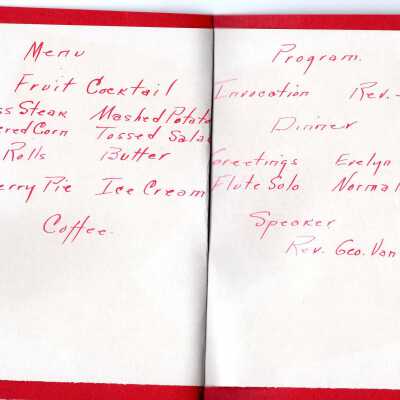 Menu
Fruit Cocktail
ss Steak Mashed Potato
ered Corn Tossed Salad
Rolls Butter
erry Pie Ice Cream
Coffee.
Program.
Invocation Rev.
Dinner
Greetings Evelyn
Flute Solo Norma
Speaker
Rev. Geo. Van